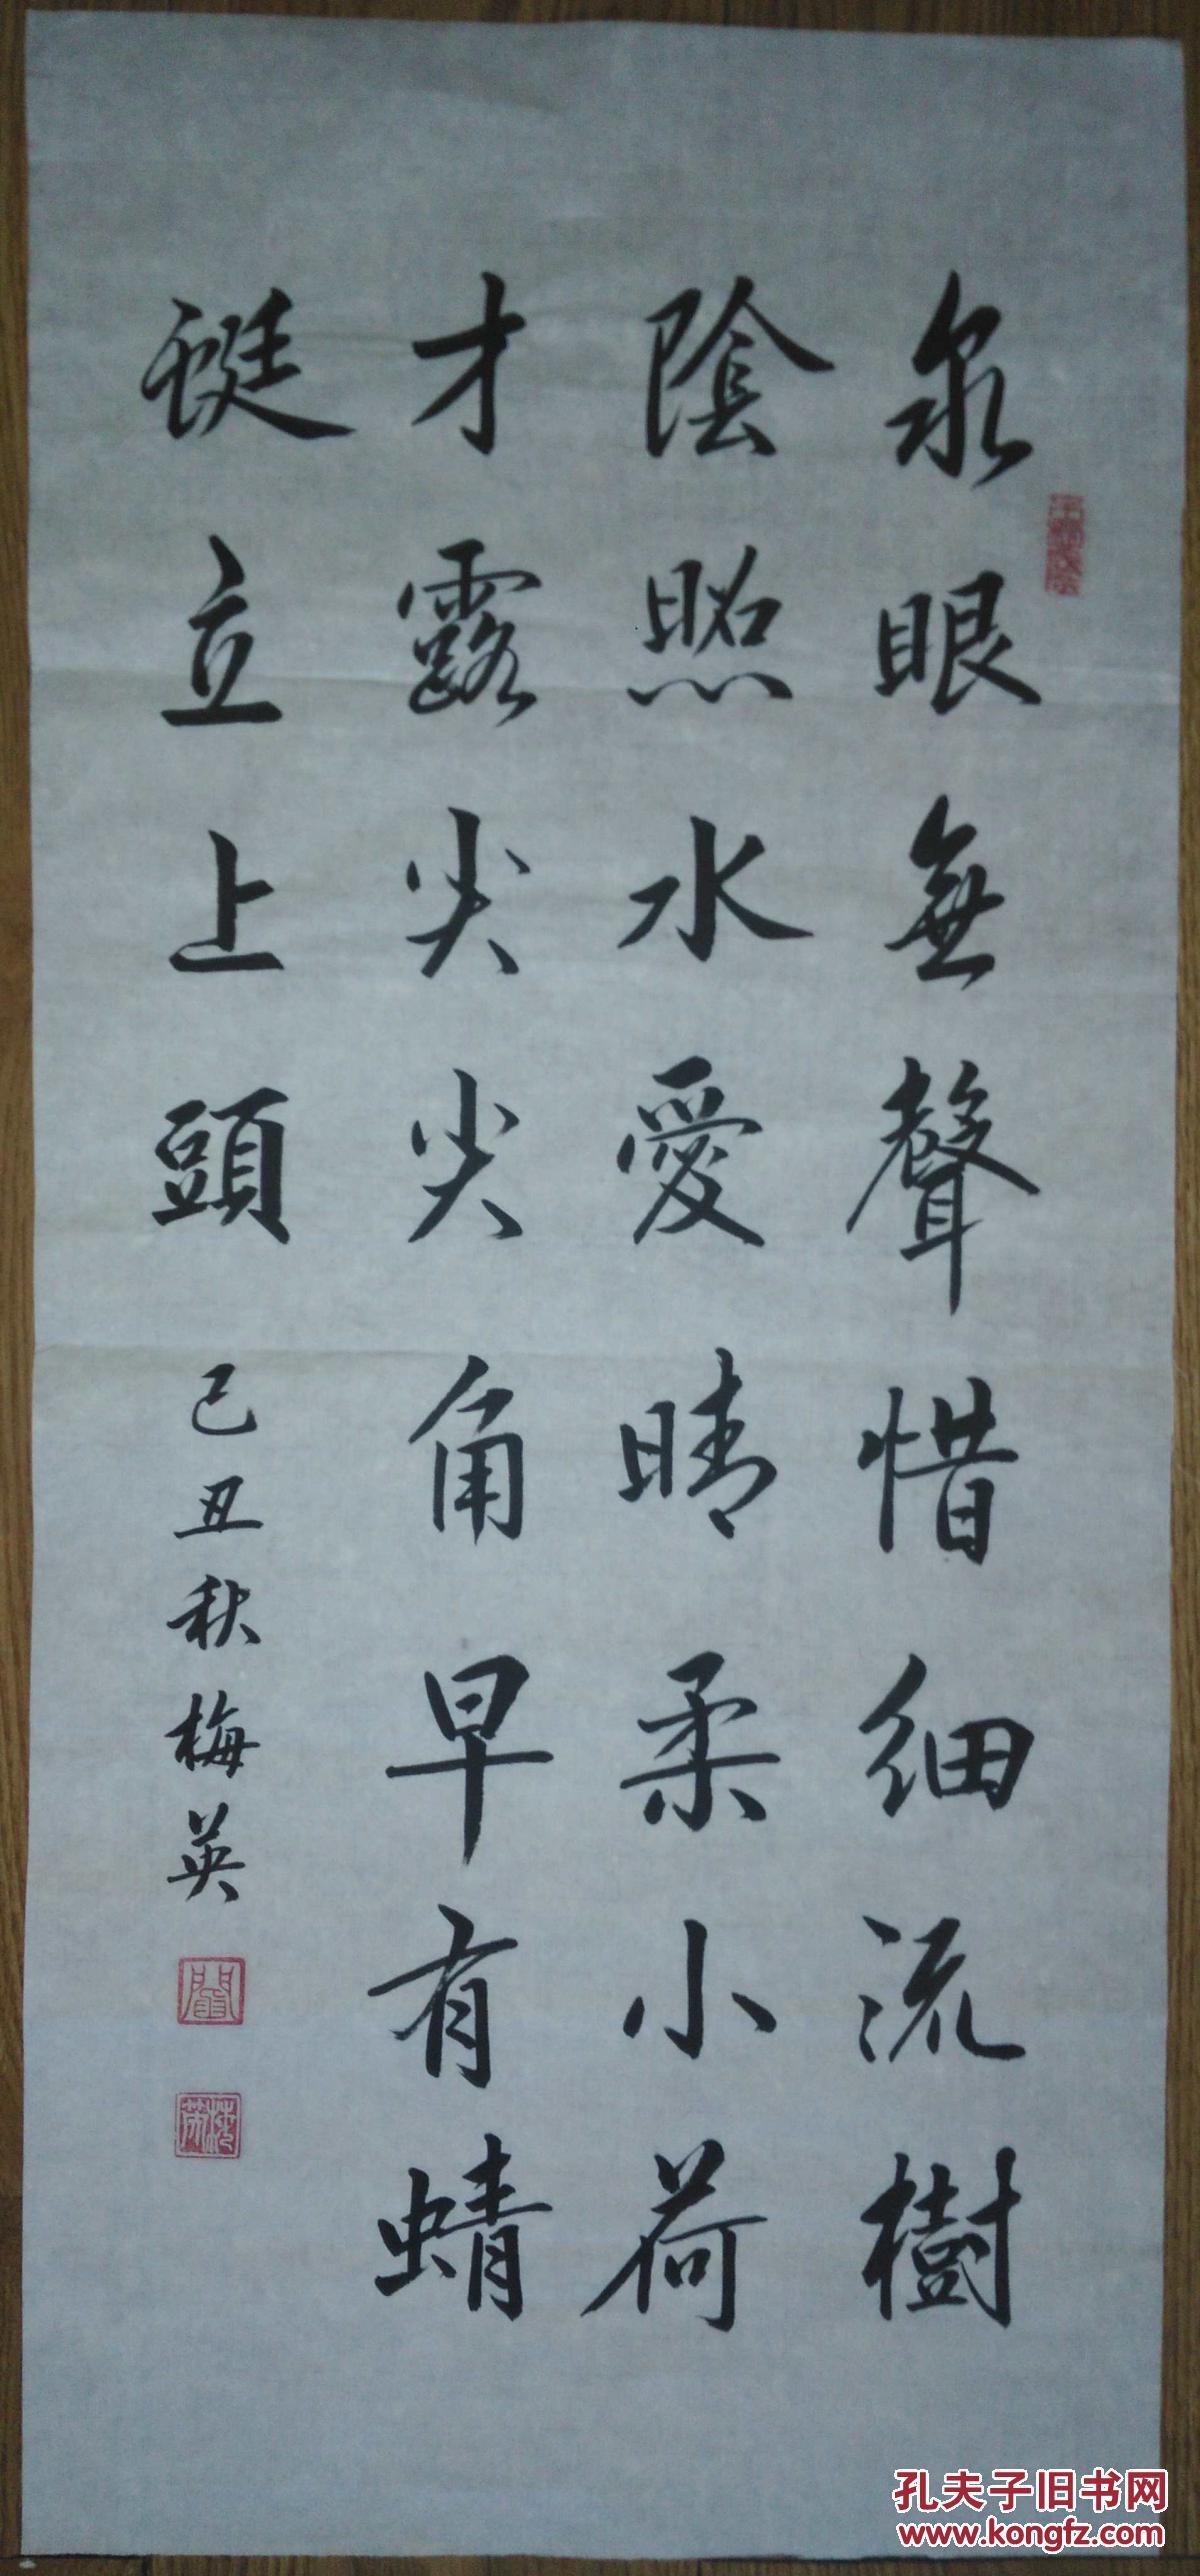 泉眼無聲惜細流樹
陰照水愛晴柔小荷
才露尖尖角早有蜻
蜓立上頭
己丑秋梅英
孔夫子旧书网
www.kongfz.com